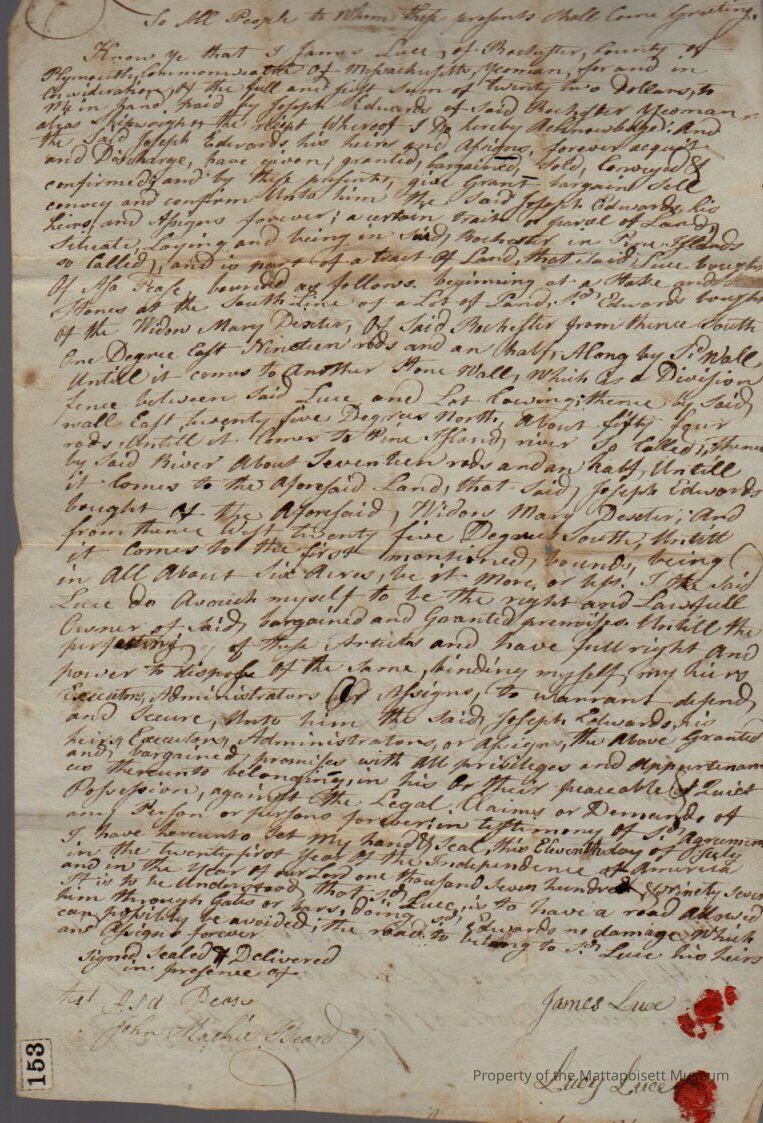 To All People to Whom these presents Shall Come Greeting.
Know ye that I James Luce, of Rochester, County of
Plymouth, Commonwealth Of Massachusetts, Yeoman, for and in
Consideration, of the full and just Sum of twenty two Dollars, to
Me in hand paid by Joseph Edwards of Said Rochester Yeoman
alias the recipt Whereof I Do hereby Acknowledge: And
the Said Joseph Edwards, his heirs and Assigns, forever acquit
and Discharge, have given, granted, bargained, Sold, Conveyed &
confirmed, and by these presents, give Grant bargain Sell
convey and confirm Unto him the Said Joseph Edwards, his
heirs, and Assigns forever; a certain tract or parsel of Land,
Situate, Laying and being in Said Rochester in Pine Islands
so Called, and is part of a tract Of Land, that Said Luce bought
Of Asa Pease, bounded as follows. beginning at a Stake and
Stones at the South Line of a Lot of Land, Sd Edwards bought
Of the Widow Mary Dexter, Of Said Rochester from thence South
One Degree East Nineteen rods and an half, Along by Sd Wall
Untill it comes to another Stone Wall, Which is a Division
fence between Said Luce and Lot thence by Said
wall East twenty five Degrees North, About fifty four
rods, Untill it Comes to Pine Island river So Called; thence
by Said River About Seventeen rods and an half, Untill
it Comes to the Aforesaid Land, that Said Joseph Edwards
bought of the Aforesaid, Widow Mary Dexter; And
from thence West twenty five Degrees South, Untill
it Comes to the first mentioned bounds, being
in All About Six Acres, be it More or less. I the Said
Luce do Avouch myself to be the right and Lawfull
Owner of Said bargained and Granted premises Untill the
perfecting of these Articles and have full right And
power to dispose Of the Same, binding myself, my heirs
Executors, Administrators Or Assigns, to warrant defend
and Secure, Unto him the Said Joseph Edwards, his
heirs, Executors, Administrators, or Assigns, the Above Granted
and bargained promises with All priviledges and Appurtenan
ces thereunto belonging, in his Or their peaceable & Quiet
Possession, against the Legal Claims or Demands of
any Person or persons forever; in testimony of Sd Agreement
I have hereunto Set My hand & Seal, this Eleventh day of July
in the twenty first Year Of the Independence of America
and in the Year of our Lord one thousand Seven hundred & Ninety Seven
It is to be Understood that sd Luce, is to have a road Allowed
him through Gates or bars, doing sd Edwards no damage Which
can possibly be avoided; the road to belong to Sd Luce his heirs
and Assigns forever
Signed, Sealed & Delivered
in presence of
test Asa Pease
John Beard
James Luce
Lucy Luce
153
Property of the Mattapoisett Museum